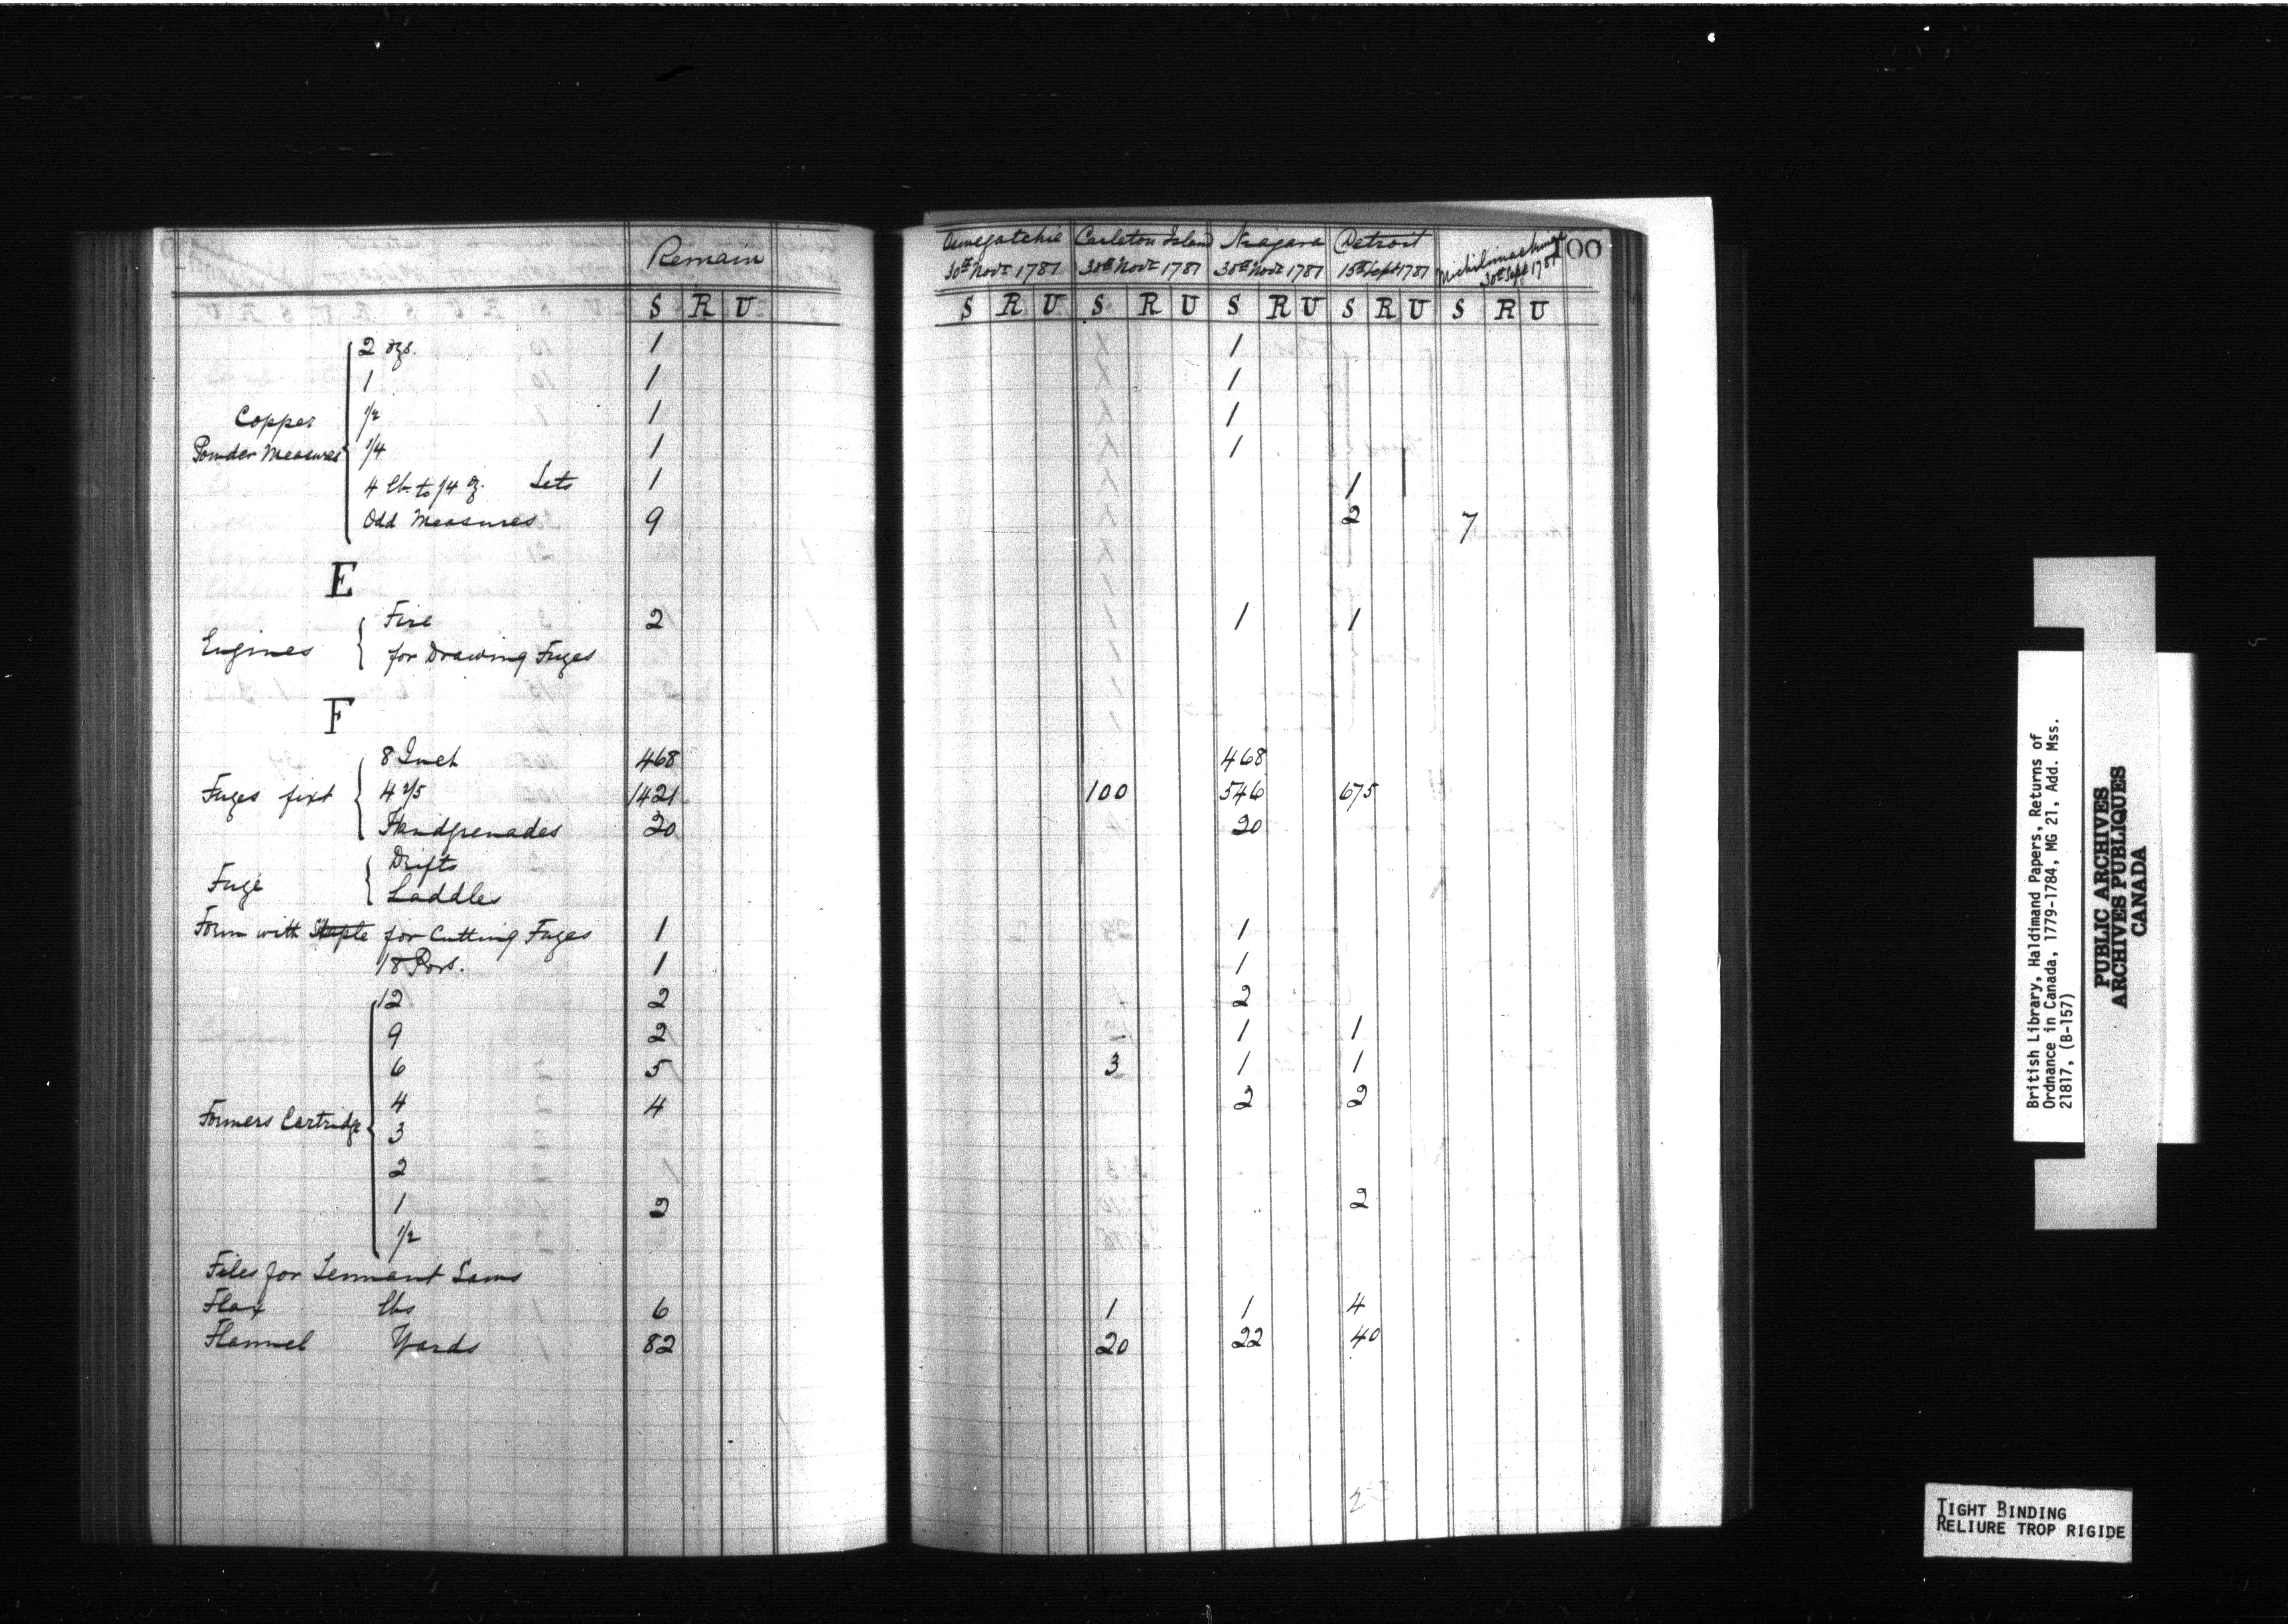 Remain
S R U
Copper Powder Measures
2 ozs. 1
1 1
1/2 1
1/4 1
4 lb. to 1/4 oz. Sets 1
Odd Measures 9
E
Engines
Fire 2
for Drawing Fuzes
F
Fuzes fixt
8 Inch 468
4 2/5 1421
Handgrenades 20
Fuze
Drifts
Laddles
Form with Staple for Cutting Fuzes 1
18 Pors. 1
Formers Cartridge
12 2
9 2
6 5
4 4
3
2
1 2
1/2
Files for Tennant Saws
Flax lbs 6
Flannel Yards 82
100
Oswegatchie Carleton Island Niagara Detroit Michilimackinac
30th Novr 1781 30th Novr 1781 30th Novr 1781 15th Sept 1781 30th Sept 1781
S R U S R U S R U S R U S R U
1
1
1
1
1
2 7
1 1
468
100 546 675
20
1
1
2
1 1
3 1 1
2 2
2
1 1 4
20 22 40
2
British Library, Haldimand Papers, Returns of
Ordnance in Canada, 1779-1784, MG 21, Add. Mss.
21817, (B-157)
PUBLIC ARCHIVES
ARCHIVES PUBLIQUES
CANADA
TIGHT BINDING
RELIURE TROP RIGIDE